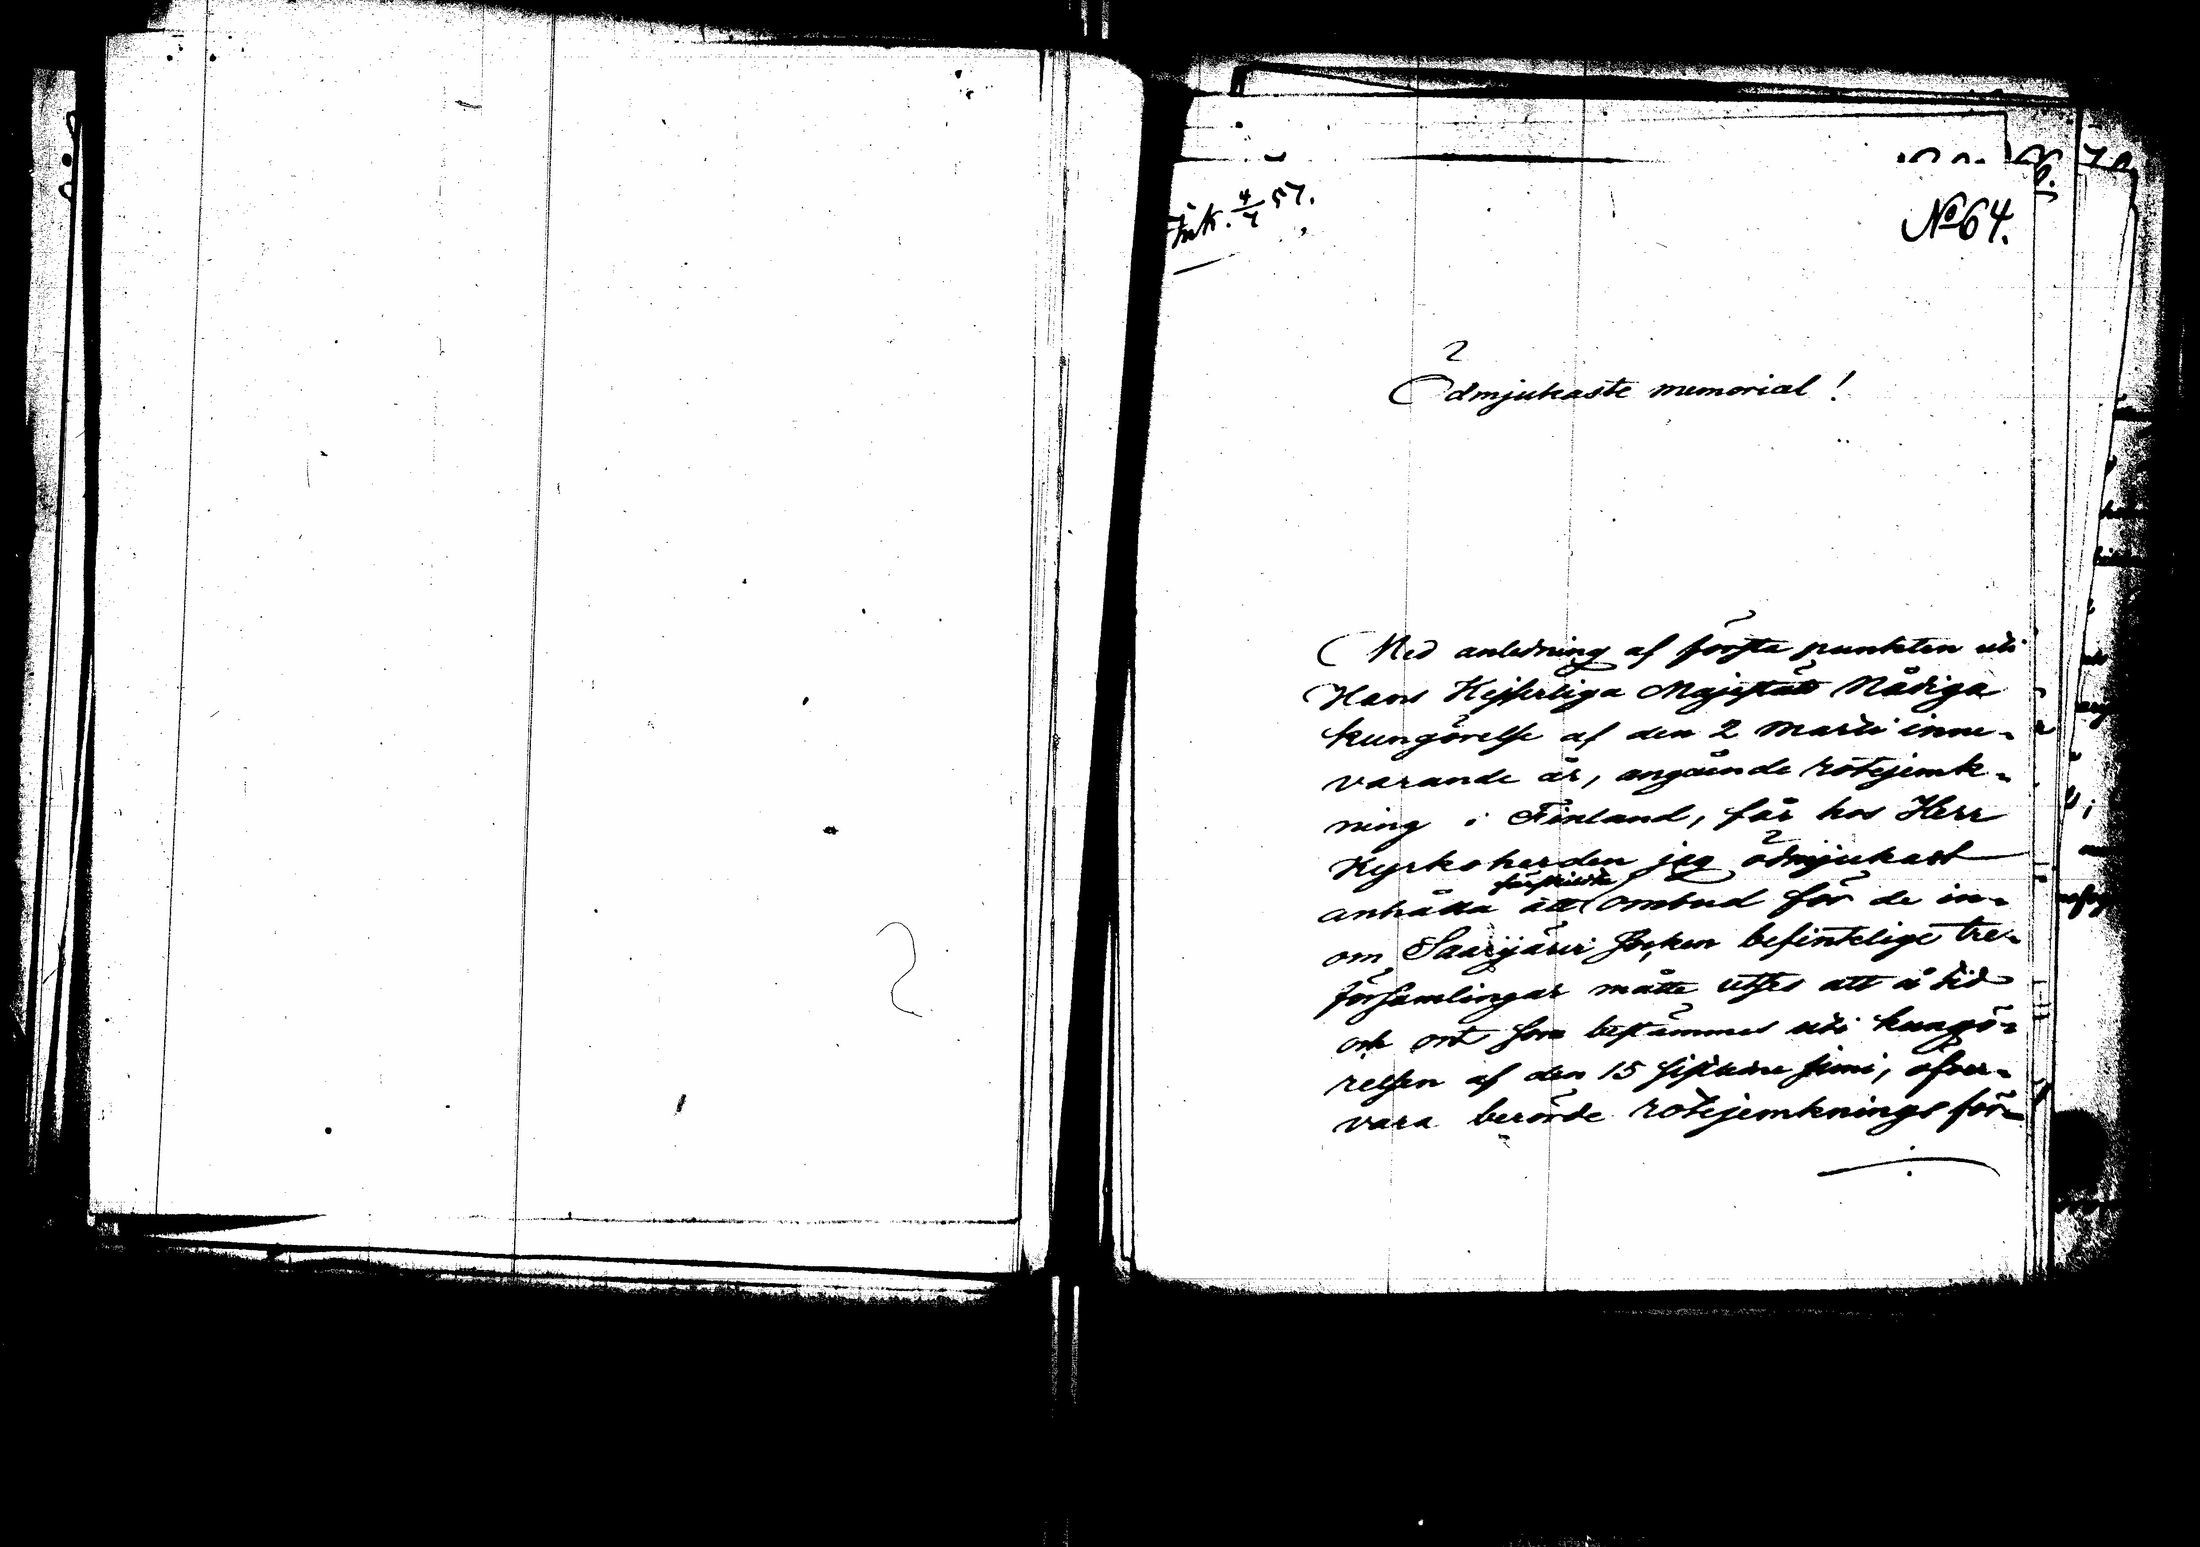 Ink. 4/7 57.
No 64.
Ödmjukaste memorial!
Med anledning af första punkten uti
Hans Kejserliga Majestäts Nådiga
kungörelse af den 2 Martii inne-
varande år, angående rotejemk-
ning i Finland, får hos Herr
Kyrkoherden jag ödmjukast
särskildte
anhålla att ombud för de in-
om Saarijärvi Socken befintelige tre
församlingar måtte utses att å tid
och ort som bestämmes uti kungö-
relsen af den 15 sistledne Juni, öfver-
vara berörde rotejemknings för-